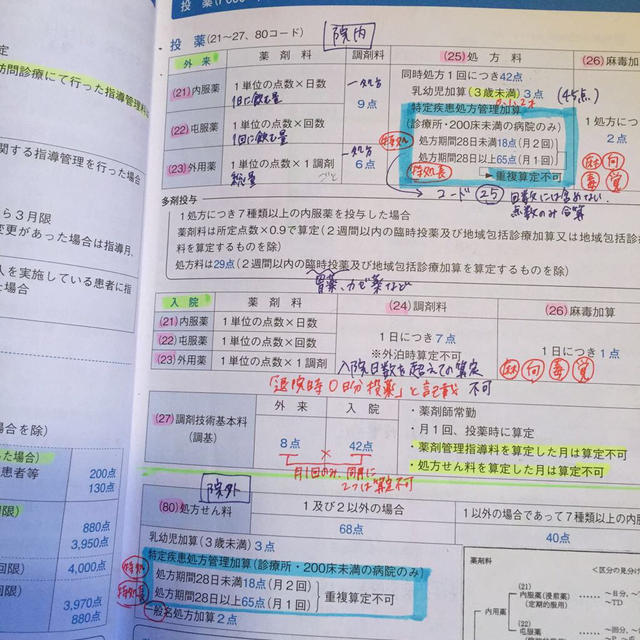 投 薬
投 薬(21~27、80コード)
院内
外 来
薬 剤 料
調剤料
(25)処 方 料
(26)麻毒加
(21)内服薬
1単位の点数×日数
1日に飲む量
一処方
9点
(22)屯服薬
1単位の点数×回数
1回に飲む量
(23)外用薬
1単位の点数×1調剤
総量
ごと
一処方
6点
同時処方1回につき42点
乳幼児加算(3歳未満)3点
(45点)
特定疾患処方管理加算
(診療所・200床未満の病院のみ)
特処
処方期間28日未満18点(月2回)
処方期間28日以上65点(月1回)
特処長
重複算定不可
1処方につ
2点
麻 向
毒 覚
コード 25 回数には含めない
点数のみ合算
多剤投与
1処方につき7種類以上の内服薬を投与した場合
薬剤料は所定点数×0.9で算定(2週間以内の臨時投薬及び地域包括診療加算又は地域包括診
料を算定するものを除く)
処方料は29点(2週間以内の臨時投薬及び地域包括診療加算を算定するものを除く)
胃薬、カゼ薬など
入 院
薬 剤 料
(24)調剤料
(26)麻毒加算
(21)内服薬
1単位の点数×日数
(22)屯服薬
1単位の点数×回数
(23)外用薬
1単位の点数×1調剤
1日につき7点
※外泊時算定不可
1日につき1点
麻 向 毒 覚
入院日数を超えての算定
不可
「退院時〇日分投薬」と記載
(27)調剤技術基本料
(調基)
外 来
入 院
8点
×
42点
月1回のみ、同月に
2つは算定不可
・薬剤師常勤
・月1回、投薬時に算定
・薬剤管理指導料を算定した月は算定不可
・処方せん料を算定した月は算定不可
院外
(80)処方せん料
1及び2以外の場合
1以外の場合であって7種類以上の内服
68点
40点
乳幼児加算(3歳未満)3点
特定疾患処方管理加算(診療所・200床未満の病院のみ)
特処
処方期間28日未満18点(月2回)
特処長
処方期間28日以上65点(月1回)
重複算定不可
一般名処方加算2点
薬剤料
<区分の見分け
(21)
内服薬(浸煎薬)
(定期的服用)
~TD
内用薬
(22)
屯服薬
訪問診療にて行った指導管理料
関する指導管理を行った場合
ら3月限
変更があった場合は指導月、
人を実施している患者に指
た場合
場合を除く)
った場合)
患者等
200点
130点
限)
880点
3,950点
回限)
4,000点
回限)
3,970点
880点